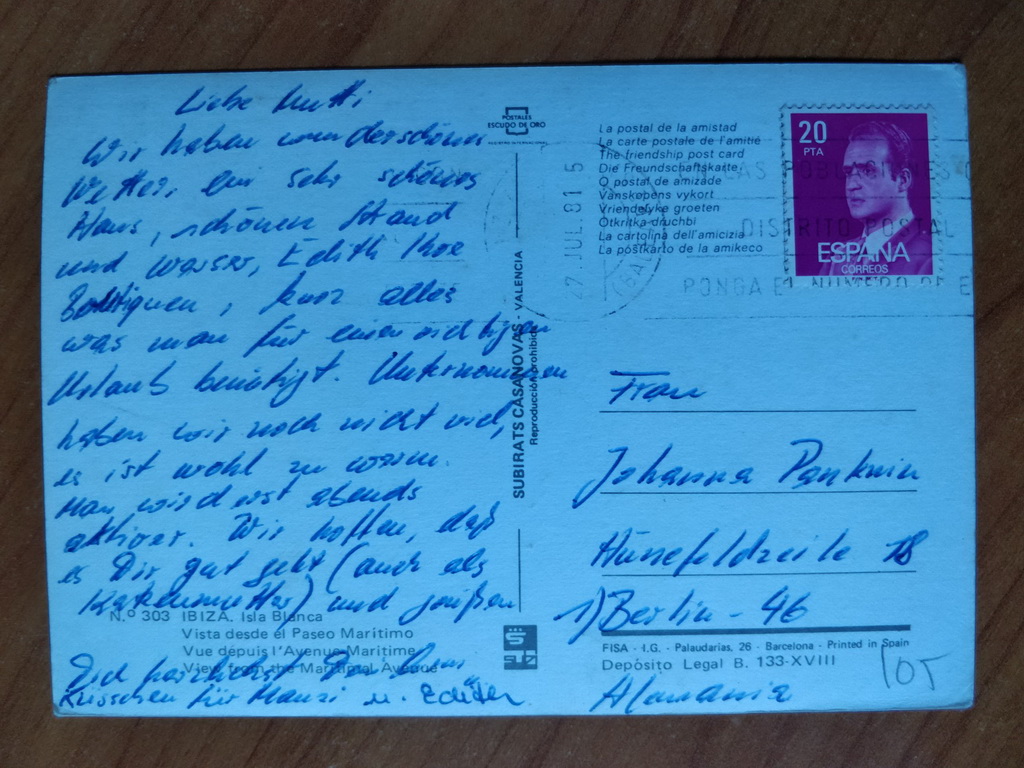 Liebe Mutti
Wir haben wunderschönes
Wetter, ein sehr schönes
Haus, schönen Strand
und Wasser, Edith ihre
Boutiquen, kurz alles
was man für einen richtigen
Urlaub benötigt. Unternommen
haben wir noch nicht viel,
es ist wohl zu warm.
Man wird erst abends
aktiver. Wir hoffen, daß
es Dir gut geht (auch als
Katzenmutter) und grüßen
Dich herzlichst
Küsschen für Mauzi u. Edith
N.º 303 IBIZA. Isla Blanca
Vista desde el Paseo Marítimo
Vue depuis l'Avenue Maritime
View from the Maritimal Avenue
POSTALES
ESCUDO DE ORO
SUBIRATS CASANOVAS - VALENCIA
Reproducción prohibida
La postal de la amistad
La carte postale de l'amitié
The friendship post card
Die Freundschaftskarte
O postal de amizade
Vänskapens vykort
Vriendelyke groeten
Otkritka druchbi
La cartolina dell'amicizia
La postkarto de la amikeco
27 JUL 81 5
20
PTA
ESPAÑA
CORREOS
LAS POBLACIONES
DISTRITO POSTAL
PONGA EL NUMERO DE
Frau
Johanna
Hünefeldzeile 18
1) Berlin - 46
FISA - I.G. - Palaudarias, 26 - Barcelona - Printed in Spain
Depósito Legal B. 133-XVIII
Alemania
105